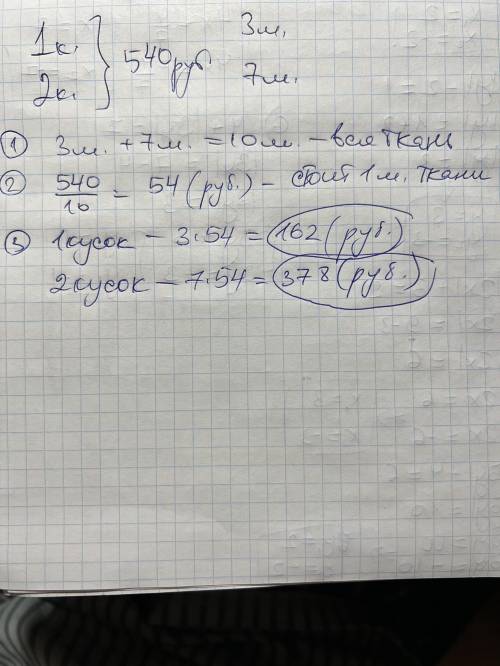 1к. } 540 руб 3м.
2к. 7м.
① 3м. + 7м. = 10 м. – вся ткань
② 540/10 = 54 (руб.) – стоит 1 м. ткани
③ 1 кусок – 3·54 = 162 (руб.)
2 кусок – 7·54 = 378 (руб.)